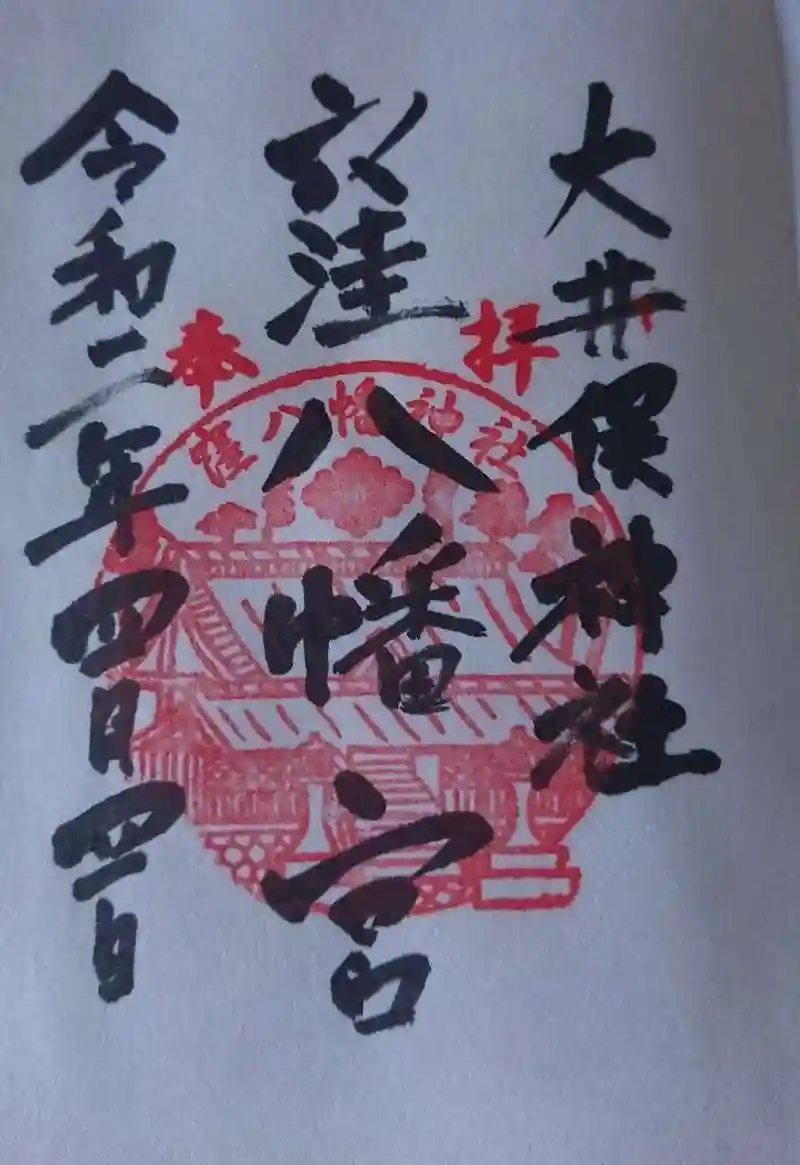 奉拝
大井俣神社
窪八幡宮
令和二年四月四日
窪八幡神社